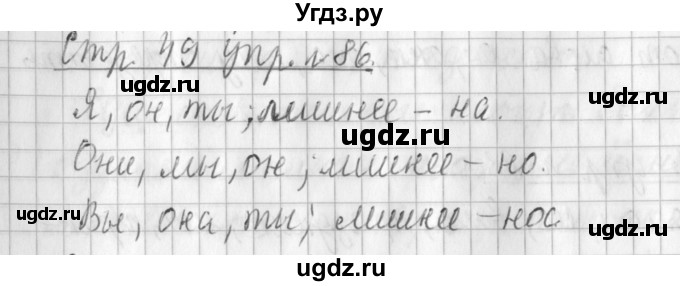 Угдз.ру
Стр. 49 упр. № 86.
ugdz.ru ugdz.ru
Я, он, ты; лишнее – на.
ugdz.ru
Они, мы, он; лишнее – но.
ugdz.ru ugdz.ru
Вы, она, ты; лишнее – нос
ugdz.ru
ugdz.ru